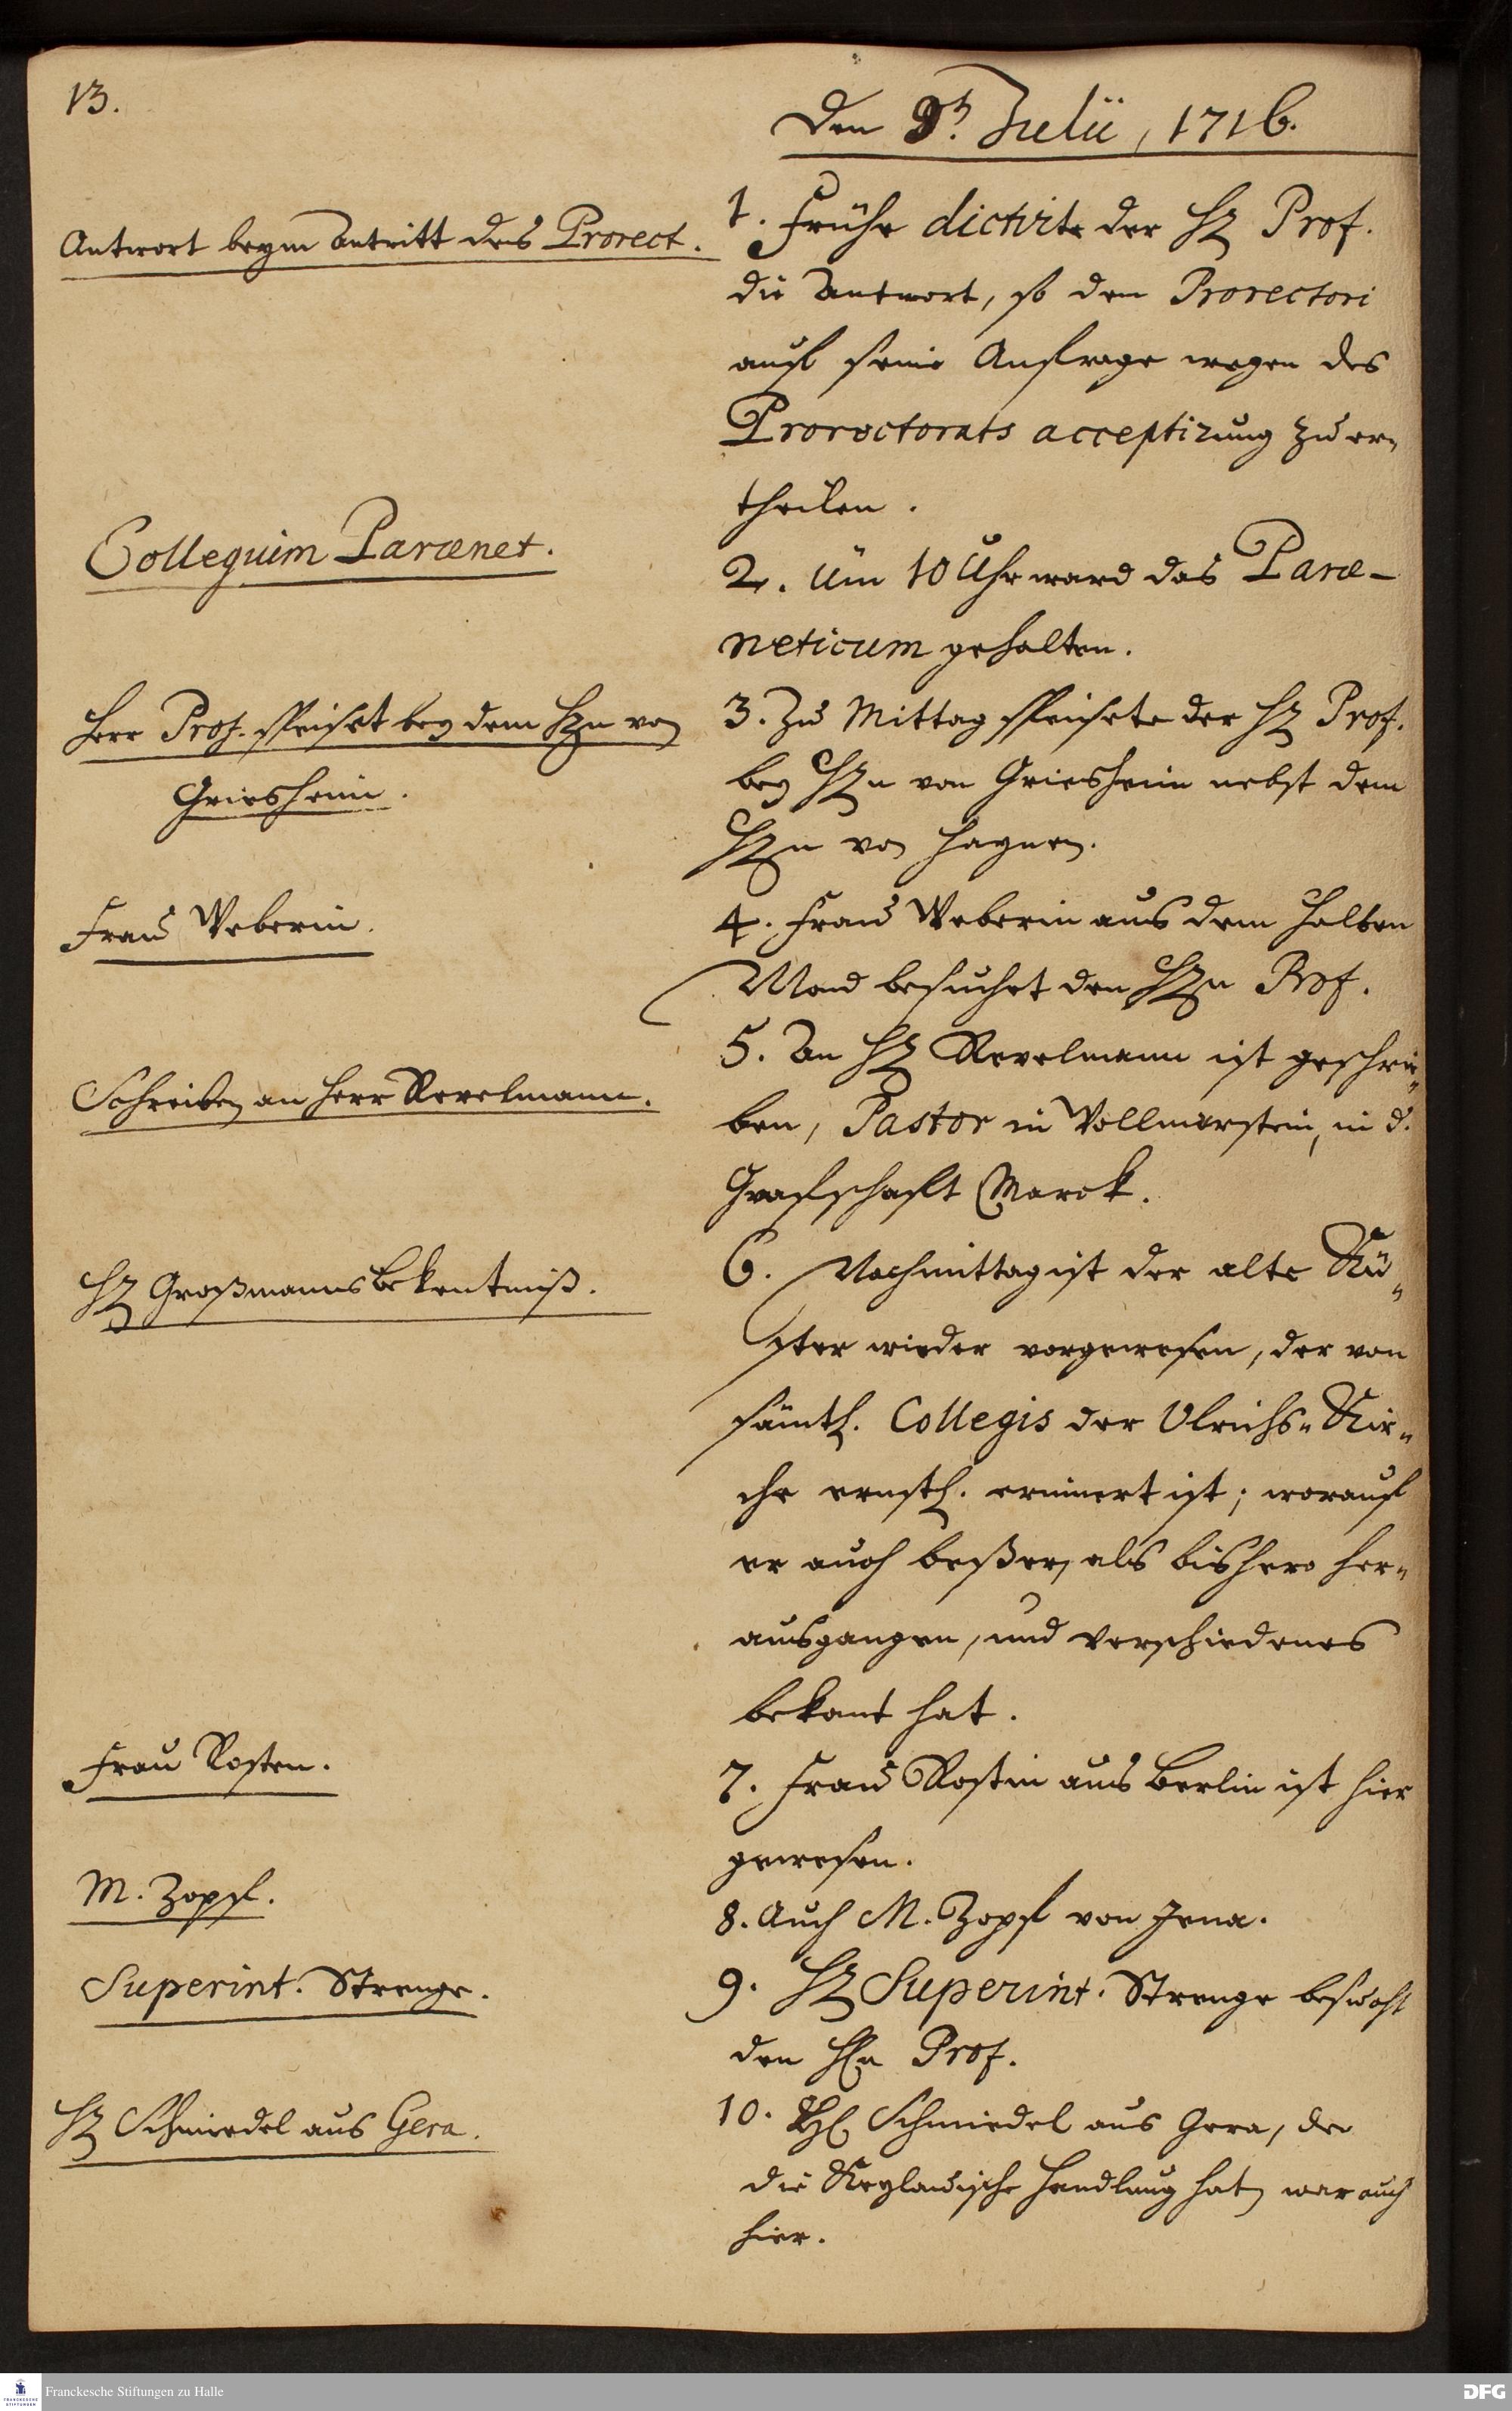 13.
Den 9t. Julii, 1716.
Antwort beym Antritt des Prorect.
1. Frühe dictirte der H. Prof.
die Antwort, so dem Prorectori
auf seine Anfrage wegen des
Prorectorats acceptirung zu er-
theilen.
Collegium Paraenet.
2. Um 10 Uhr ward das Parae-
neticum gehalten.
Herr Prof. speiset bey dem Hn von
Griesheim.
3. Zu Mittag speisete der H. Prof.
bey Hn von Griesheim nebst dem
Hn von Hagnen.
Frau Weberin.
4. Frau Weberin aus dem halben
Mond besuchet den Hn Prof.
Schreiben an Herr Revelmann.
5. An H. Revelmann ist geschrie-
ben, Pastor in Vollmerstein, in d.
Grafschafft Marck.
H. Großmanns Bekentniß.
6. Nachmittag ist der alte Kü-
ster wieder vorgewesen, der von
sämtl. Collegis der Ulrichs-Kir-
che ernstl. erinnert ist; worauf
er auch beßer, als bishero her-
ausgangen, und verschiedenes
bekant hat.
Frau Rosten.
7. Frau Rostin aus Berlin ist hier
gewesen.
M. Zopf.
8. Auch M. Zopf von Jena.
Superint. Strenge.
9. H. Superint. Strenge besucht
den Hn Prof.
H. Schmiedel aus Gera.
10. H. Schmiedel aus Gera, der
die Handlung hat, war auch
hier.
Franckesche Stiftungen zu Halle
DFG